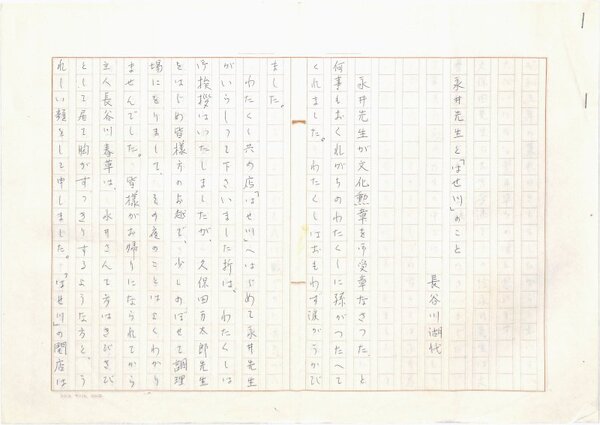 永井先生と「はせ川」のこと
長谷川湖代
永井先生が文化勲章を御受章なさつた、と
何事もおくれがちのわたくしに孫がつたへて
くれました。わたくしはおもわず涙がうかび
ました。
わたくし共の店「はせ川」へはじめて永井先生
がいらしつて下さいました折は、わたくしは
御挨拶はいたしましたが、久保田万太郎先生
をはじめ皆様方のお越で、少しのぼせて調理
場にをりまして、その座のことはよくわかり
ませんでした。皆様がお帰りになられてから
主人長谷川春草は、永井さんて方はきびきび
として居て胸がすつきりするような方と、う
れしい顔をして申しました。「はせ川」の開店は